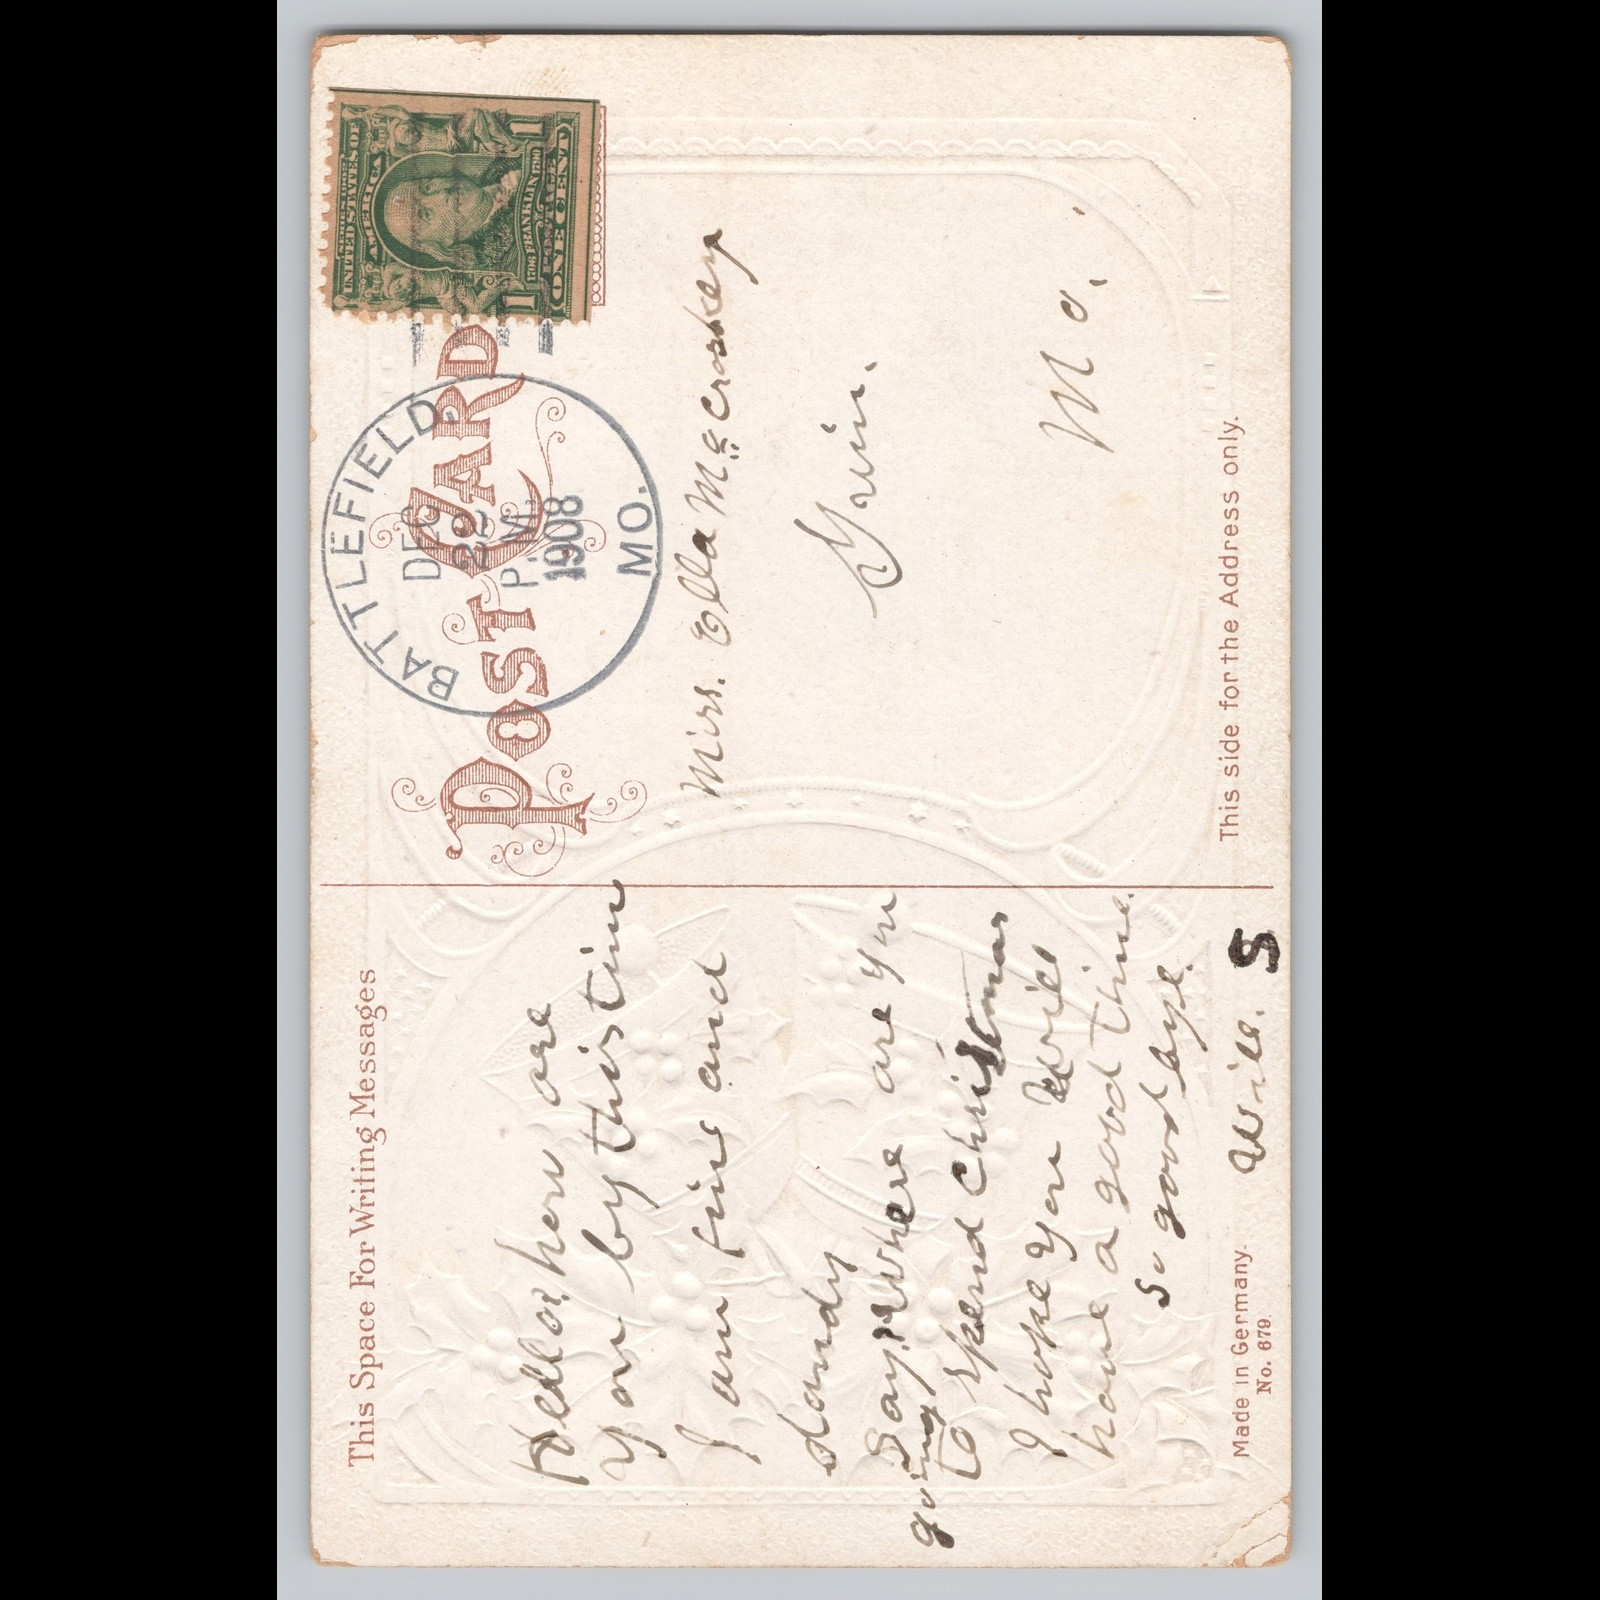 This Space For Writing Messages
Hello, how are
you by this time
I am fine and
dandy
Say, where are you
going
to spend Christmas
I hope you will
have a good time.
so good bye.
Will. S
Made in Germany.
No. 679.
POST CARD
BATTLEFIELD,
DEC
22
P.M.
1908
MO.
SERIES 1902
UNITED STATES OF
AMERICA
1706 FRANKLIN 1790
POSTAGE
1 1
ONE CENT
Miss. Ella McCroskey
Mo.
This side for the Address only.